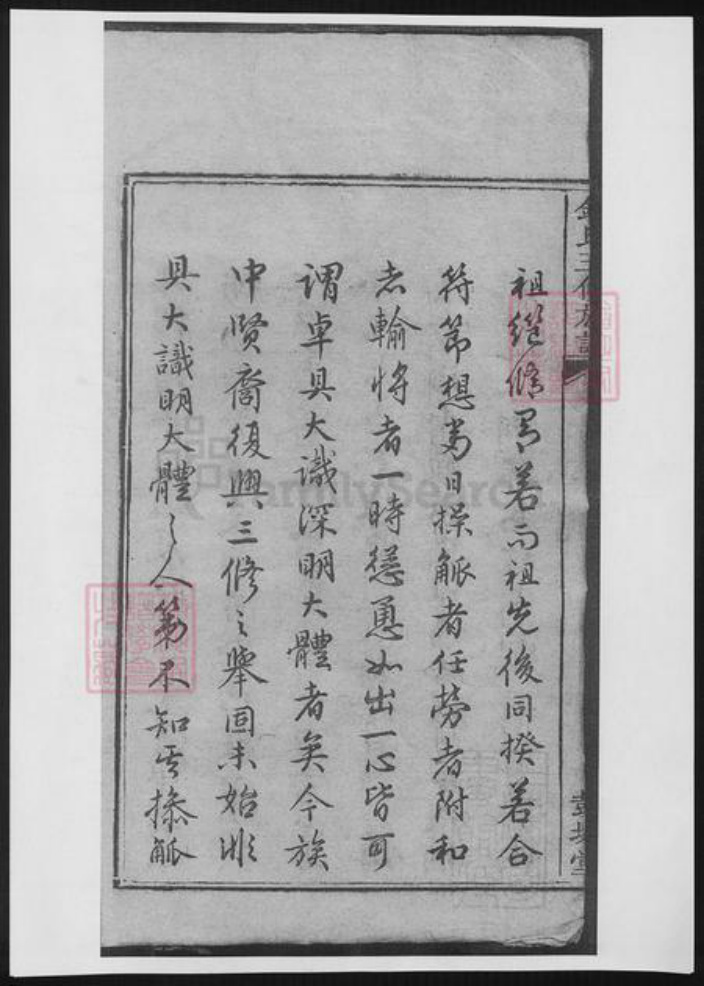 祖繼脩異若而祖先後同揆若合
符節想當日操觚者任勞者附和
者輸將者一時慫恿如出一心皆可
謂卓具大識深明大體者矣今族
中賢裔復興三修之舉固未始非
具大識明大體之人第不知其操觚
氏三修族譜
堂
FamilySearch